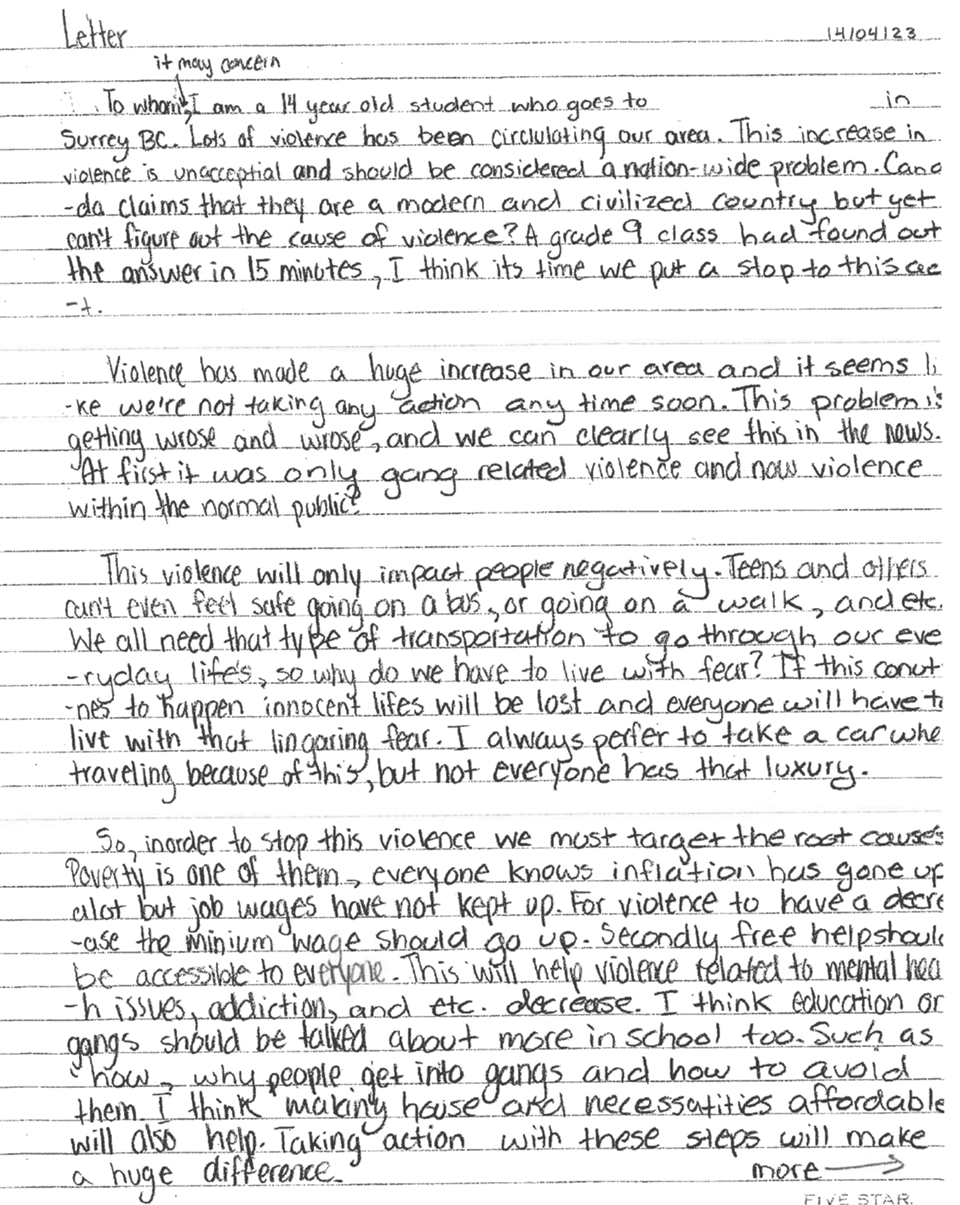 Letter
14/04/23
it may concern
To whom, I am a 14 year old student who goes to in
Surrey BC. Lots of violence has been circlulating our area. This increase in
violence is unacceptial and should be considered a nation-wide problem. Cana
-da claims that they are a modern and civilized country but yet
can't figure out the cause of violence? A grade 9 class had found out
the answer in 15 minutes, I think its time we put a stop to this ac
-t.
Violence has made a huge increase in our area and it seems li
-ke we're not taking any action any time soon. This problem is
getting wrose and wrose, and we can clearly see this in the news.
At first it was only gang related violence and now violence
within the normal public?
This violence will only impact people negatively. Teens and others
can't even feel safe going on a bus, or going on a walk, and etc.
We all need that type of transportation to go through our eve
-ryday life's, so why do we have to live with fear? If this conut
-nes to happen innocent lifes will be lost and everyone will have t
live with that lingaring fear. I always perfer to take a car whe
traveling because of this, but not everyone has that luxury.
So, inorder to stop this violence we must target the root causes
Poverty is one of them, everyone knows inflation has gone up
alot but job wages have not kept up. For violence to have a decre
-ase the minium wage should go up. Secondly free help shoul
be accessible to everyone. This will help violence related to mental hea
-h issues, addiction, and etc. decrease. I think education or
gangs should be talked about more in school too. Such as
how, why people get into gangs and how to avoid
them. I think making house and necessatities affordable
will also help. Taking action with these steps will make
a huge difference.
more →
FIVE STAR.